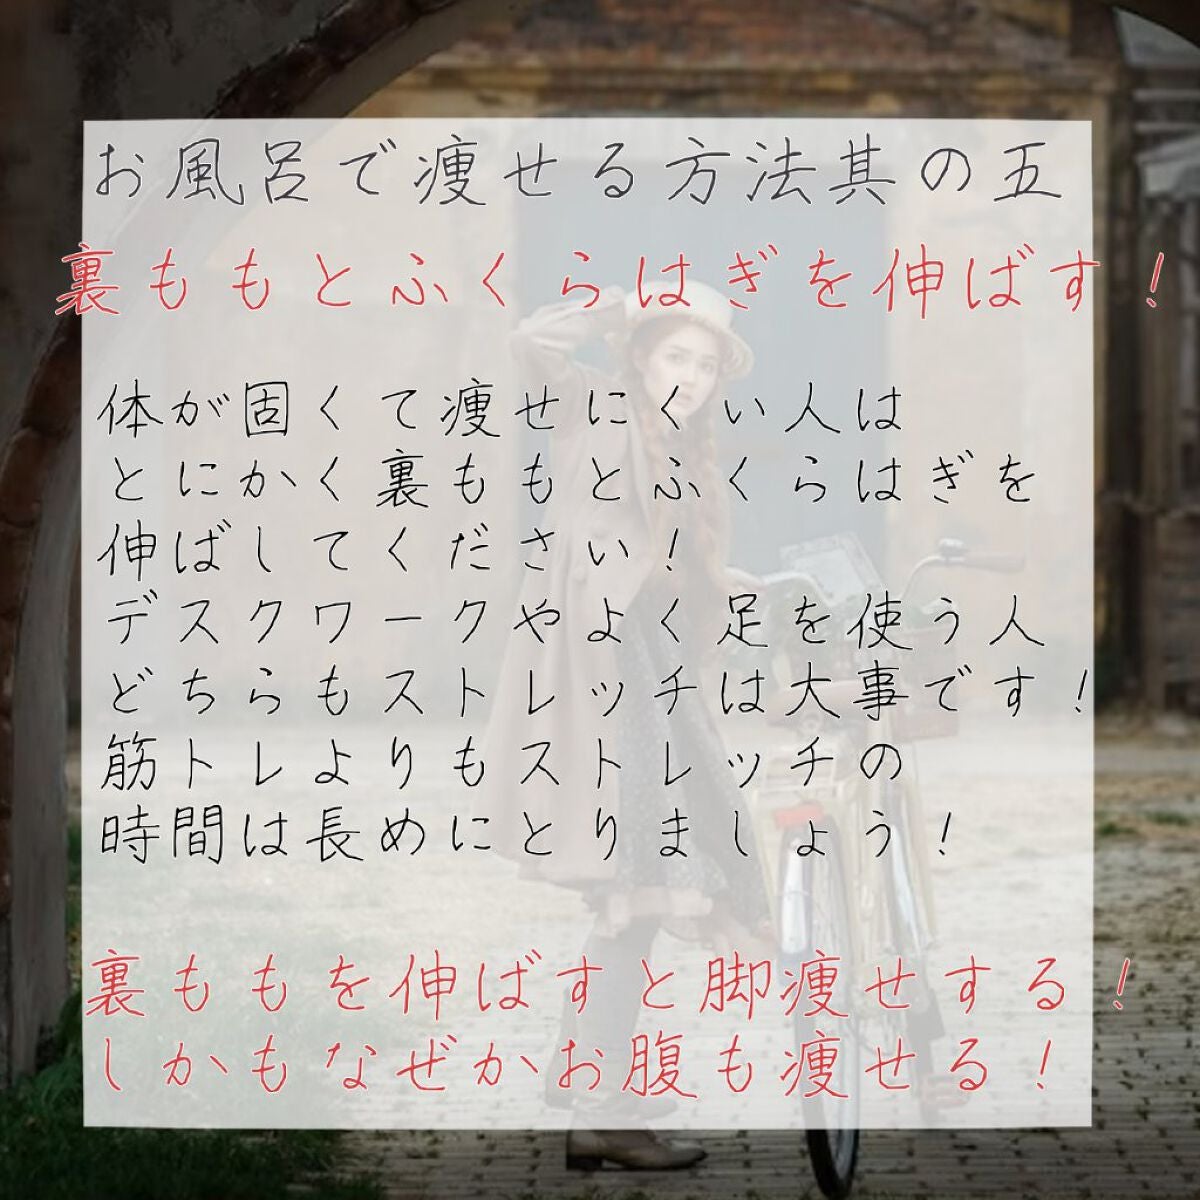 お風呂で痩せる方法其の五
裏ももとふくらはぎを伸ばす！
体が固くて痩せにくい人は
とにかく裏ももとふくらはぎを
伸ばしてください！
デスクワークやよく足を使う人
どちらもストレッチは大事です！
筋トレよりもストレッチの
時間は長めにとりましょう！
裏ももを伸ばすと脚痩せする！
しかもなぜかお腹も痩せる！